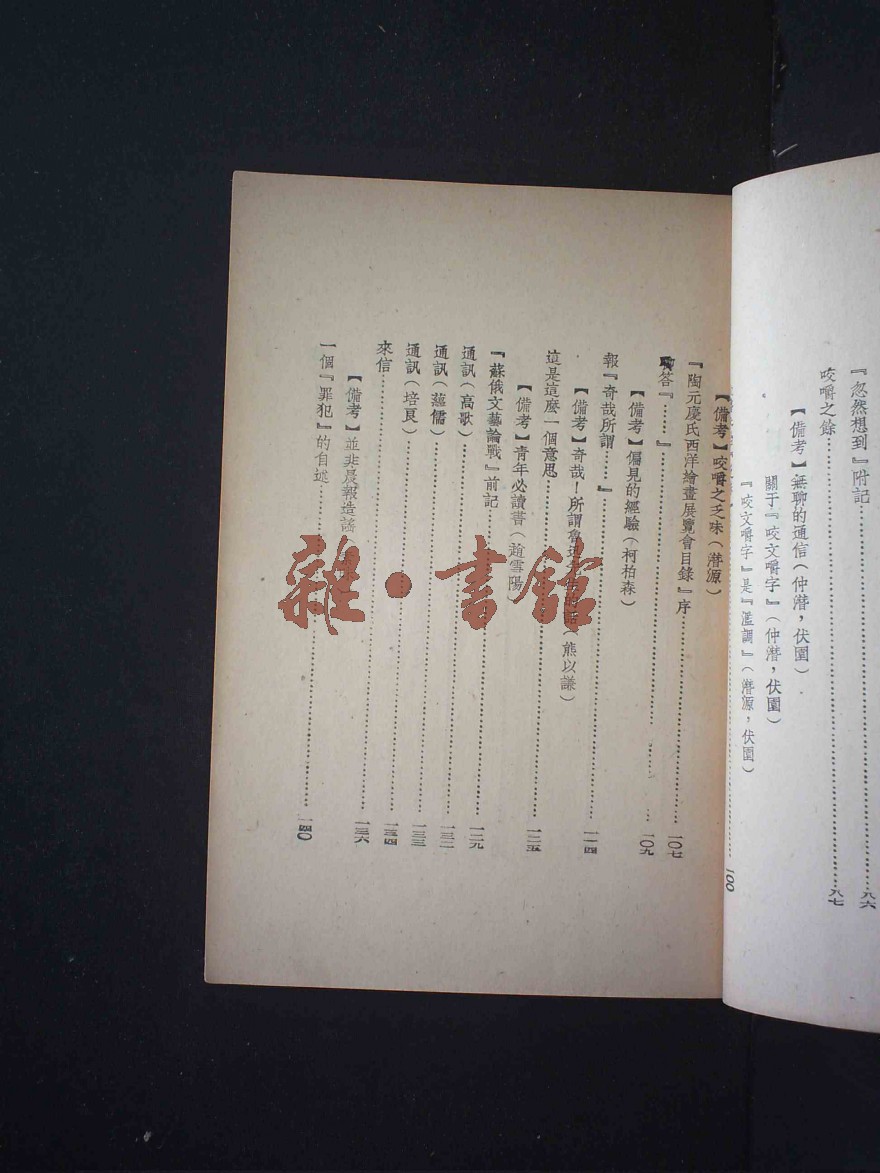 『忽然想到』附記……八六
咬嚼之餘……八七
【備考】無聊的通信(仲潛,伏園)
關于『咬文嚼字』(仲潛,伏園)
『咬文嚼字』是『濫調』(潛源,伏園)
……一〇〇
【備考】咬嚼之乏味(潛源)
『陶元慶氏西洋繪畫展覽會目錄』序……一〇七
聊答『……』……一〇九
【備考】偏見的經驗(柯柏森)
報『奇哉所謂……』……一一四
【備考】奇哉!所謂魯迅先生的話(熊以謙)
這是這麼一個意思……一二五
【備考】青年必讀書(趙雪陽)
『蘇俄文藝論戰』前記……一二九
通訊(高歌)……一三二
通訊(蘊儒)……一三三
通訊(培良)……一三四
來信……一三六
【備考】並非晨報造謠(
一個『罪犯』的自述……一四〇
雜·書館